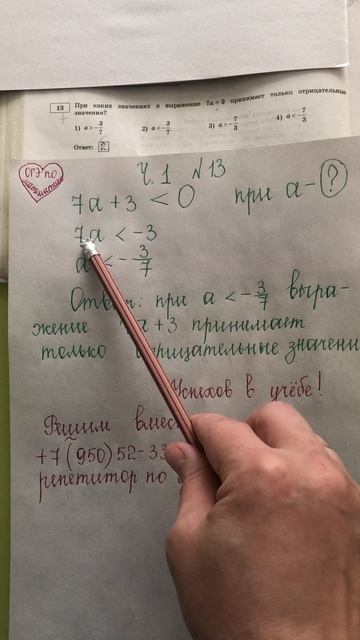 13 При каких значениях a выражение 7a + 3 принимает только отрицательные
значения?
1) a > -3/7 2) a < -3/7 3) a > -7/3 4) a < -7/3
Ответ: 2
ОГЭ по математике
Ч.1 №13
7a + 3 < 0 при a - ?
7a < -3
a < -3/7
Ответ: при a < -3/7 выра-
жение a + 3 принимает
только отрицательные значени
Успехов в учёбе!
Решим вмес
+7(950)52-33
репетитор по